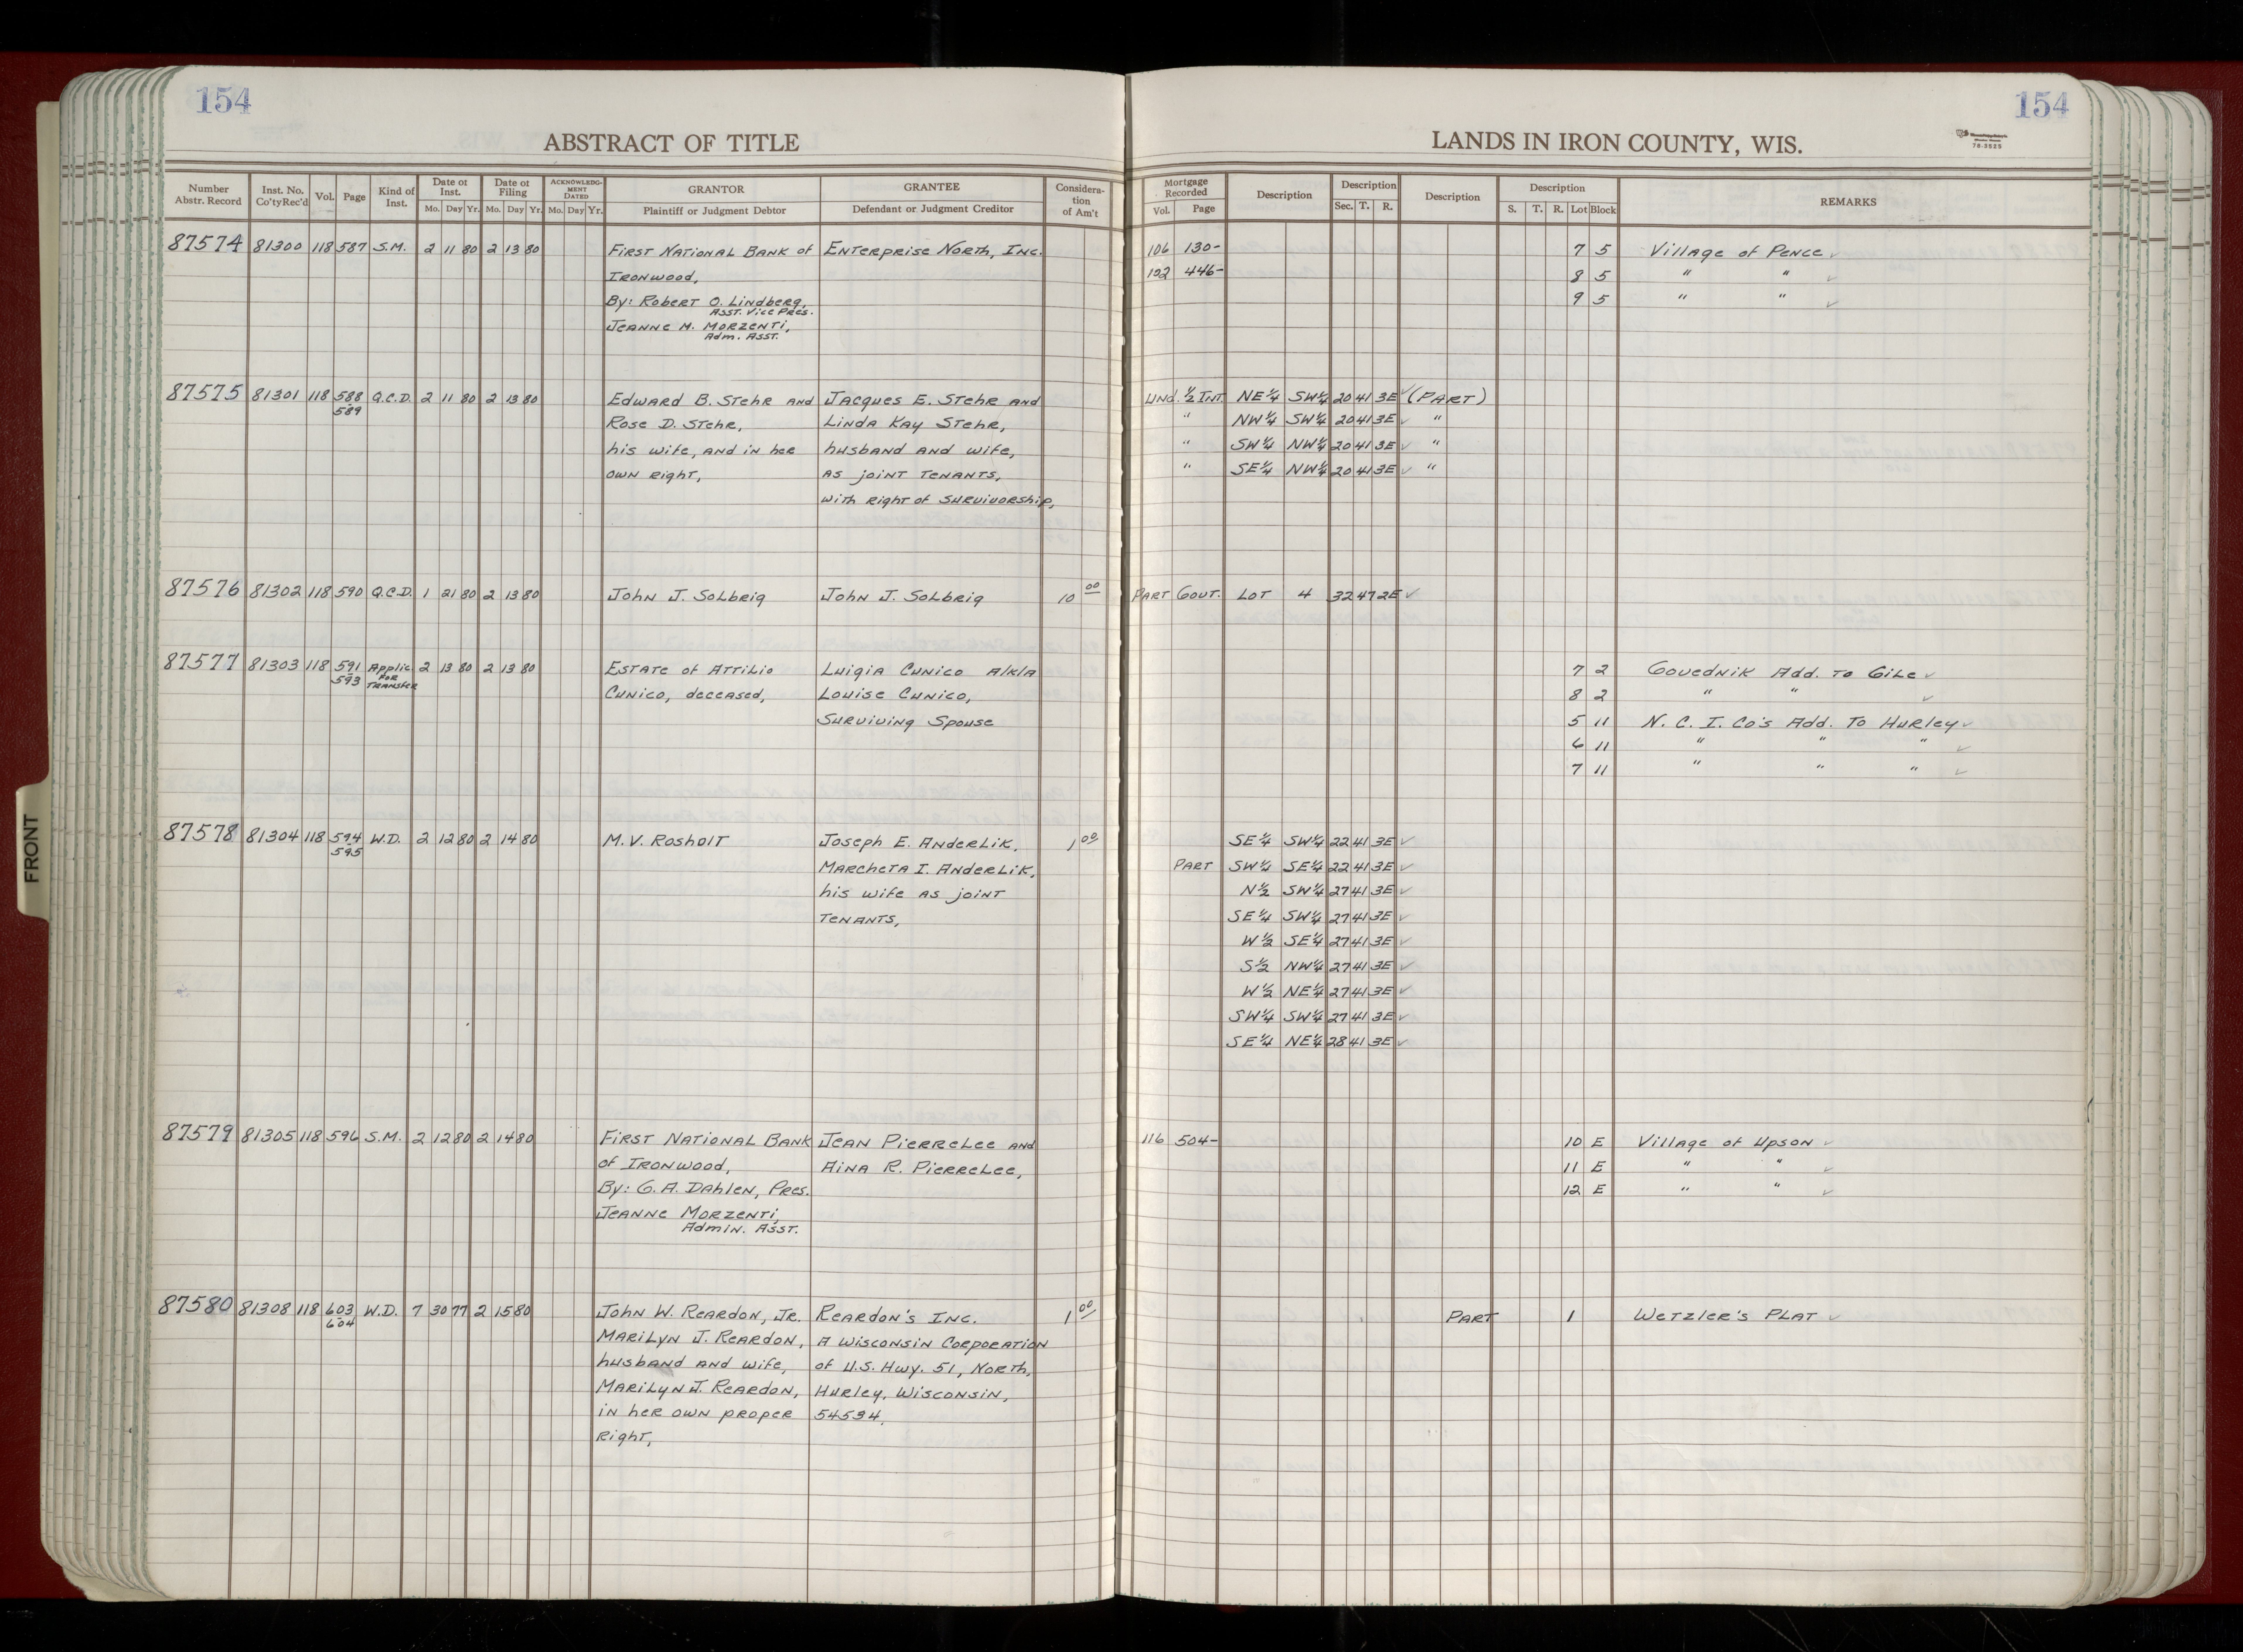 154
ABSTRACT OF TITLE
Number Abstr. Record | Inst. No. Co'ty Rec'd | Vol. | Page | Kind of Inst. | Date of Inst. Mo. Day Yr. | Date of Filing Mo. Day Yr. | ACKNOWLEDGMENT DATED Mo. Day Yr. | GRANTOR Plaintiff or Judgment Debtor | GRANTEE Defendant or Judgment Creditor | Consideration of Am't
87574 81300 118 587 S.M. 2 11 80 2 13 80 First National Bank of Enterprise North, Inc.
Ironwood,
By: Robert O. Lindberg,
Asst. Vice Pres.
Jeanne M. Morzenti,
Adm. Asst.
87575 81301 118 588 Q.C.D. 2 11 80 2 13 80 Edward B. Stehr and Jacques E. Stehr and
589 Rose D. Stehr, Linda Kay Stehr,
his wife, and in her husband and wife,
own right, as joint tenants,
with right of survivorship,
87576 81302 118 590 Q.C.D. 1 21 80 2 13 80 John J. Solbrig John J. Solbrig 10 00
87577 81303 118 591 Applic. 2 13 80 2 13 80 Estate of Attilio Luigia Cunico a/k/a
593 for Transfer Cunico, deceased, Louise Cunico,
Surviving Spouse
87578 81304 118 594 W.D. 2 12 80 2 14 80 M.V. Rosholt Joseph E. Anderlik, 1 00
595 Marcheta I. Anderlik,
his wife as joint
tenants,
87579 81305 118 596 S.M. 2 12 80 2 14 80 First National Bank Jean PierreLee and
of Ironwood, Aina R. PierreLee,
By: G.A. Dahlen, Pres.
Jeanne Morzenti,
Admin. Asst.
87580 81308 118 603 W.D. 7 30 77 2 15 80 John W. Reardon, Jr. Reardon's Inc. 1 00
604 Marilyn J. Reardon, a Wisconsin Corporation
husband and wife, of U.S. Hwy. 51, North,
Marilyn J. Reardon, Hurley, Wisconsin,
in her own proper 54534.
right,
FRONT
154
LANDS IN IRON COUNTY, WIS.
78-3525
Mortgage Recorded Vol. Page | Description | Description Sec. T. R. | Description | Description S. T. R. Lot Block | REMARKS
106 130- 7 5 Village of Pence ✓
102 446- 8 5 " " ✓
9 5 " " ✓
Und. 1/2 Int. NE1/4 SW1/4 20 41 3E ✓ (Part)
" NW1/4 SW1/4 20 41 3E ✓ "
" SW1/4 NW1/4 20 41 3E ✓ "
" SE1/4 NW1/4 20 41 3E ✓ "
Part Gout. Lot 4 32 47 2E ✓
7 2 Gouednik Add. to Gile ✓
8 2 " " ✓
5 11 N. C. I. Co's Add. To Hurley ✓
6 11 " " " ✓
7 11 " " " ✓
SE1/4 SW1/4 22 41 3E ✓
Part SW1/4 SE1/4 22 41 3E ✓
N1/2 SW1/4 27 41 3E ✓
SE1/4 SW1/4 27 41 3E ✓
W1/2 SE1/4 27 41 3E ✓
S1/2 NW1/4 27 41 3E ✓
W1/2 NE1/4 27 41 3E ✓
SW1/4 SW1/4 27 41 3E ✓
SE1/4 NE1/4 28 41 3E ✓
116 504- 10 E Village of Upson ✓
11 E " " ✓
12 E " " ✓
Part 1 Wetzler's Plat ✓